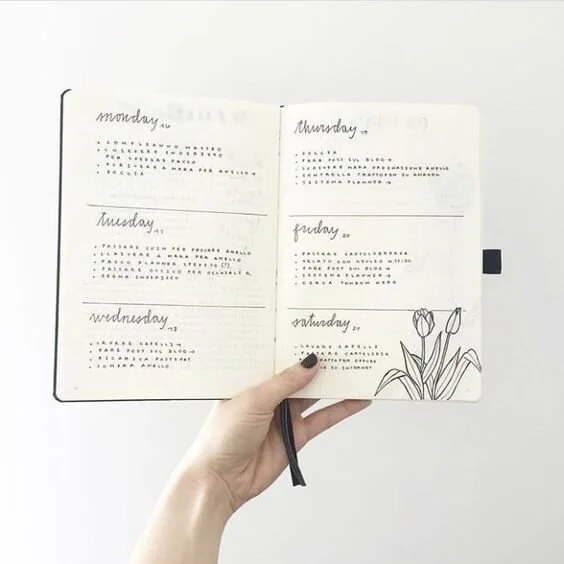 monday 16
• COMPLEANNO MATTEO
• CHIEDERE INDIRIZZO
PER SPEDIRE PACCO
• SCRIVERE A MARA PER ANELLO
• DOCCIA
tuesday 17
• PASSARE COIN PER PROVARE ANELLO
• SCRIVERE A MARA PER ANELLO
• PACCO PLANNER SPEDITO (?)
• PASSARE OTTICO PER OCCHIALE
INDIRIZZO
wednesday 18
• LAVARE CAPELLI
• FARE POST SUL BLOG →
• RICARICA POSTEPAY
• COMPRA ANELLO
thursday 19
• DOCCIA
• FARE POST SUL BLOG →
• SCRIVERE MARA ORDINAZIONE ANELLO
• CONTROLLA TRATTOPEN SU AMAZON
• SISTEMA PLANNER →
friday 20
• PASSARE CARTOLERIA
• GELATO CON GIULIO
• FARE POST SUL BLOG →
• SISTEMA PLANNER →
• CERCA TOMBOW NERO
saturday 21
• LAVARE CAPELLI
PASSARE CARTOLERIA
TRATTOPEN OPPURE
SU INTERNET